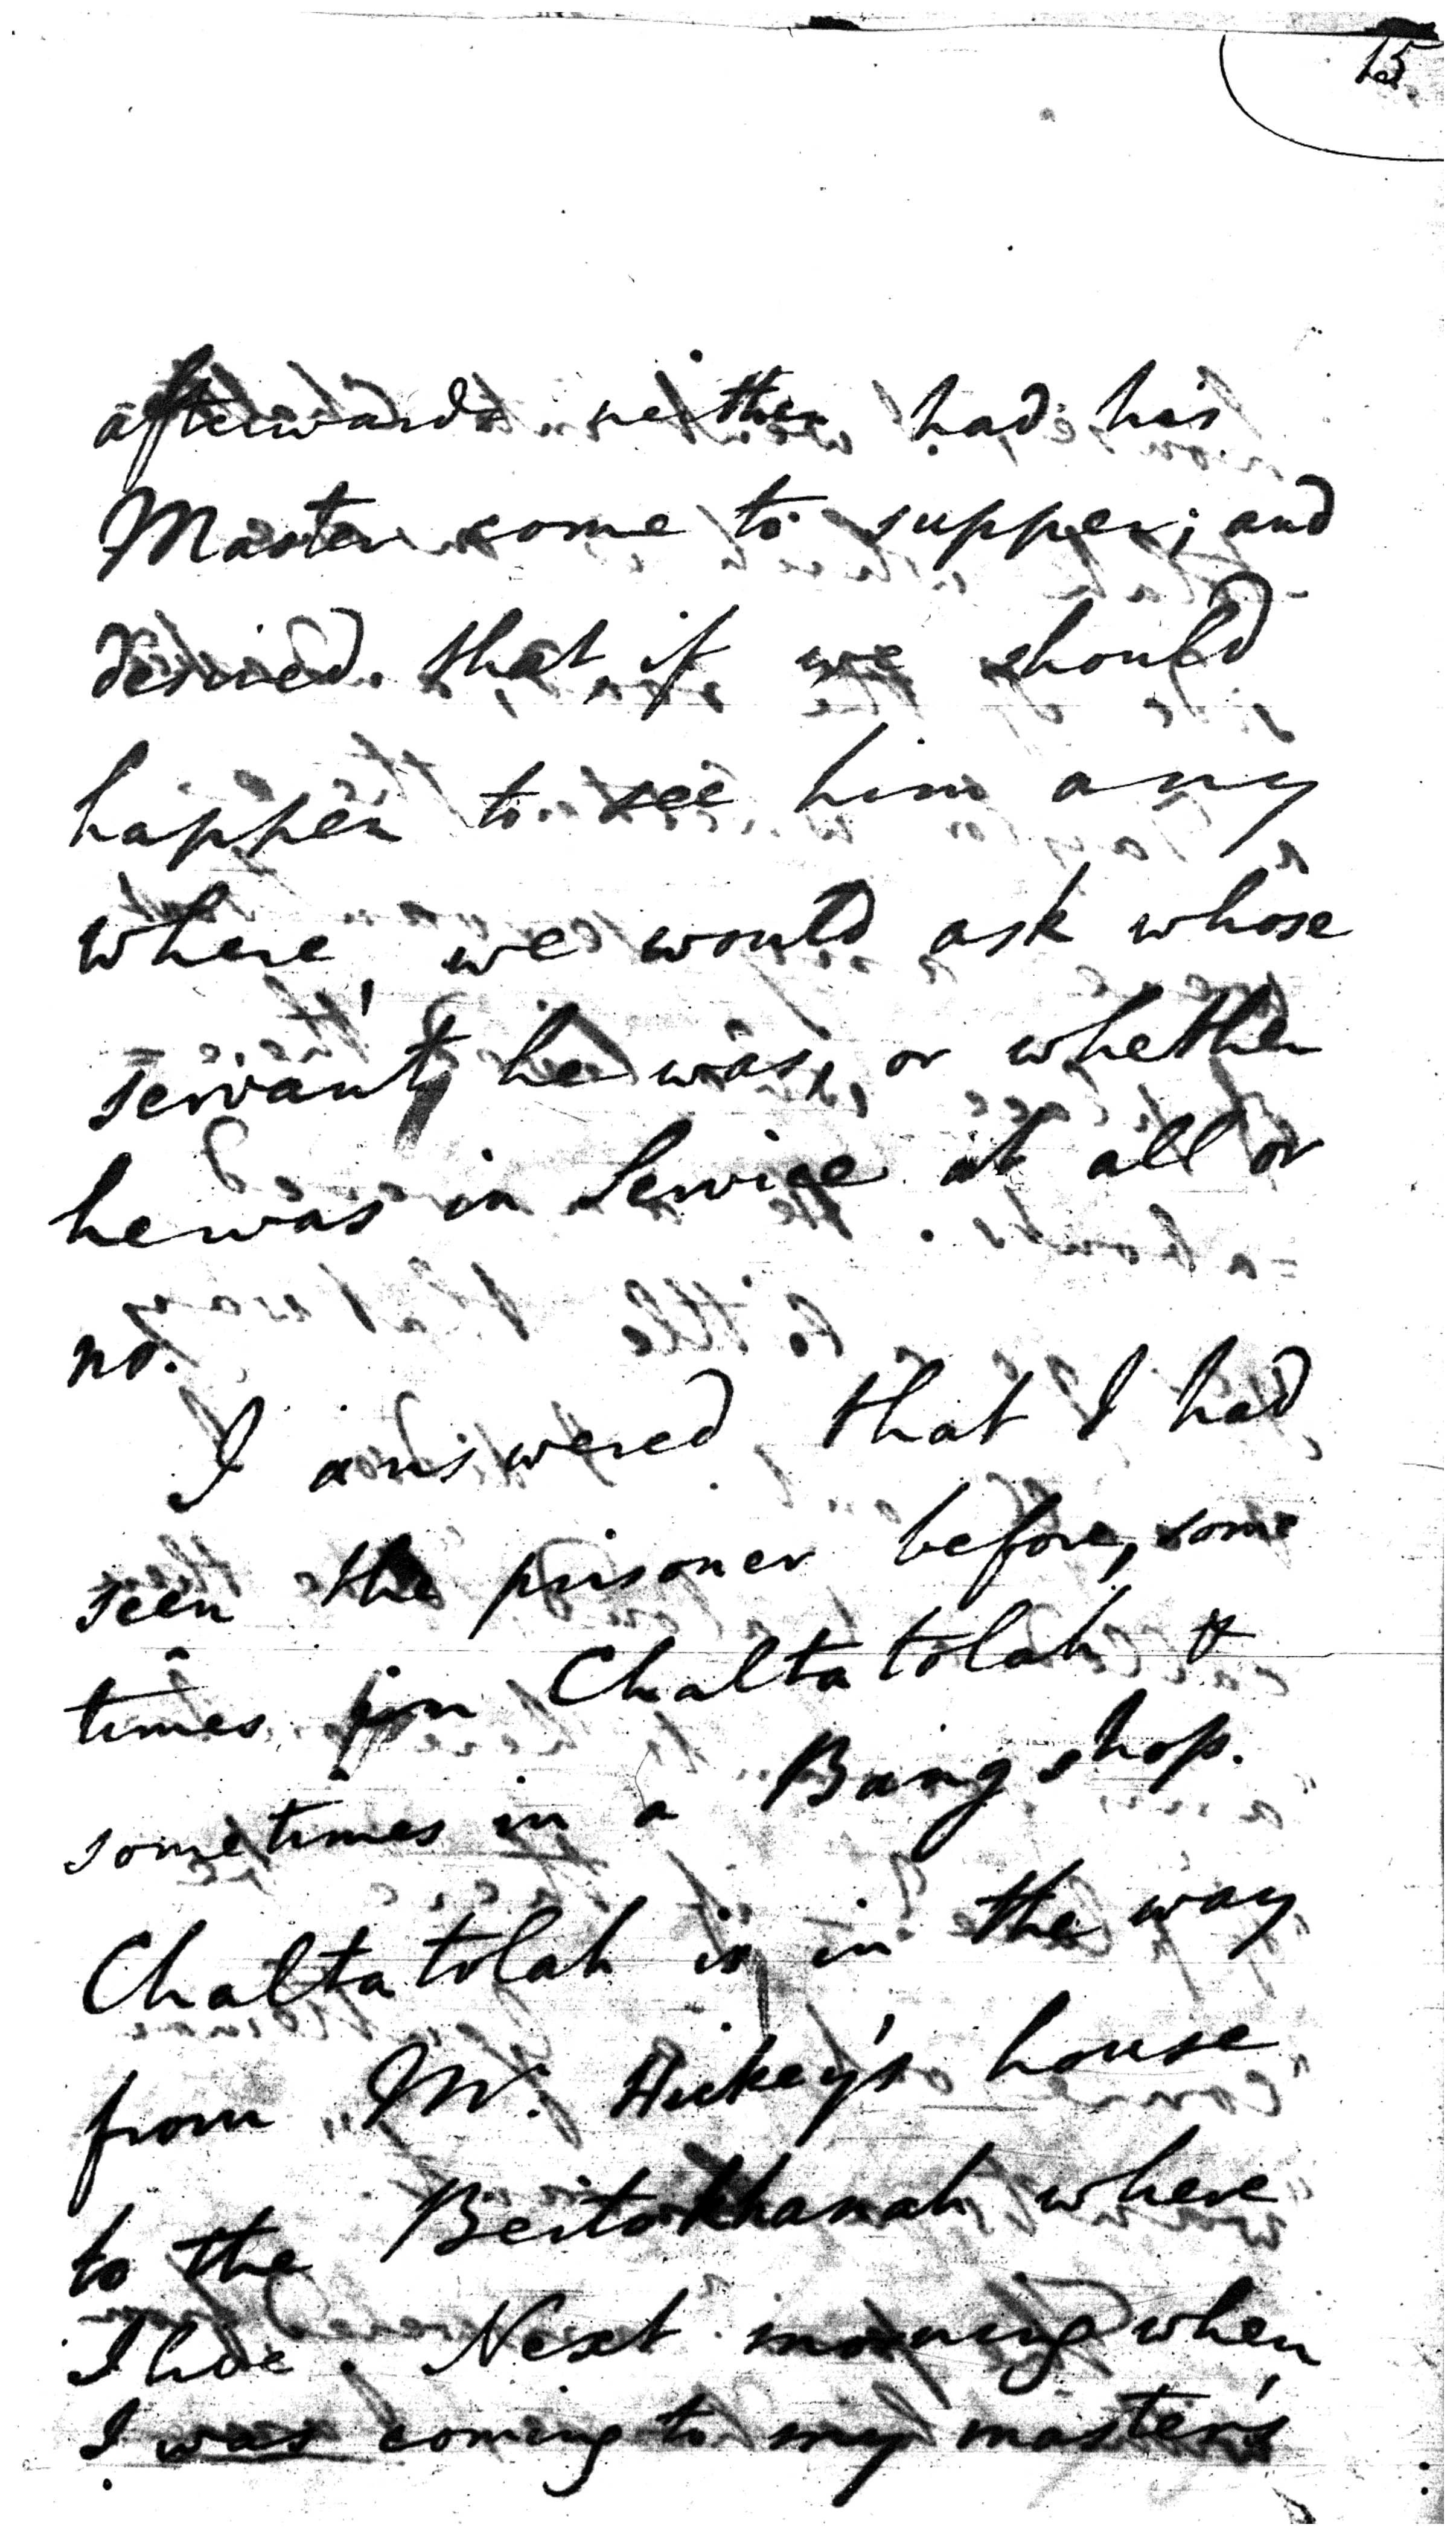 15
afterwards neither had his
Master come to supper; and
desired that if we should
happen to see him any
where, we would ask whose
servant he was, or whether
he was in Service at all or
no.
I answered that I had
seen the prisoner before, some
times in Chaltatolah &
sometimes in a Bang shop.
Chaltatolah is in the way
from Mr. Hickey's house
to the Bertokhanah where
I live. Next morning when
I was coming to my master's